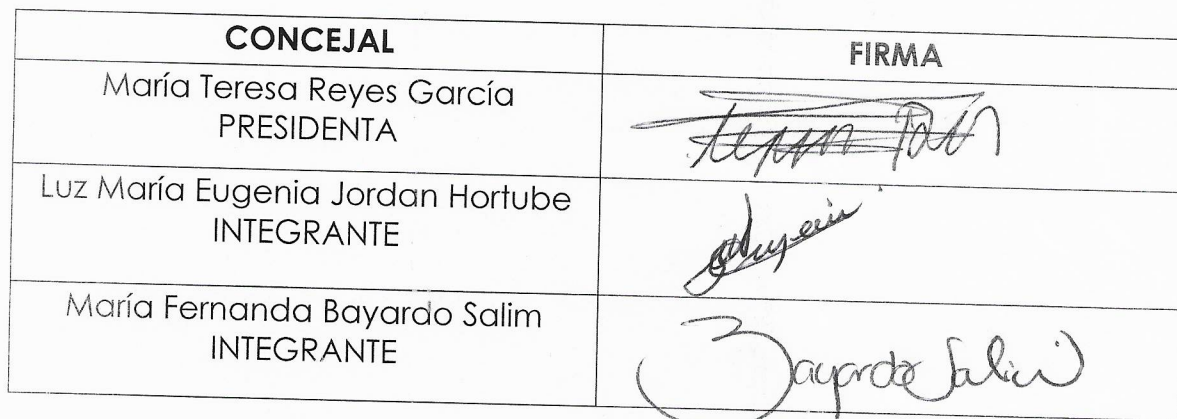 CONCEJAL
FIRMA
María Teresa Reyes García
PRESIDENTA
Luz María Eugenia Jordan Hortube
INTEGRANTE
María Fernanda Bayardo Salim
INTEGRANTE
Bayardo Salim